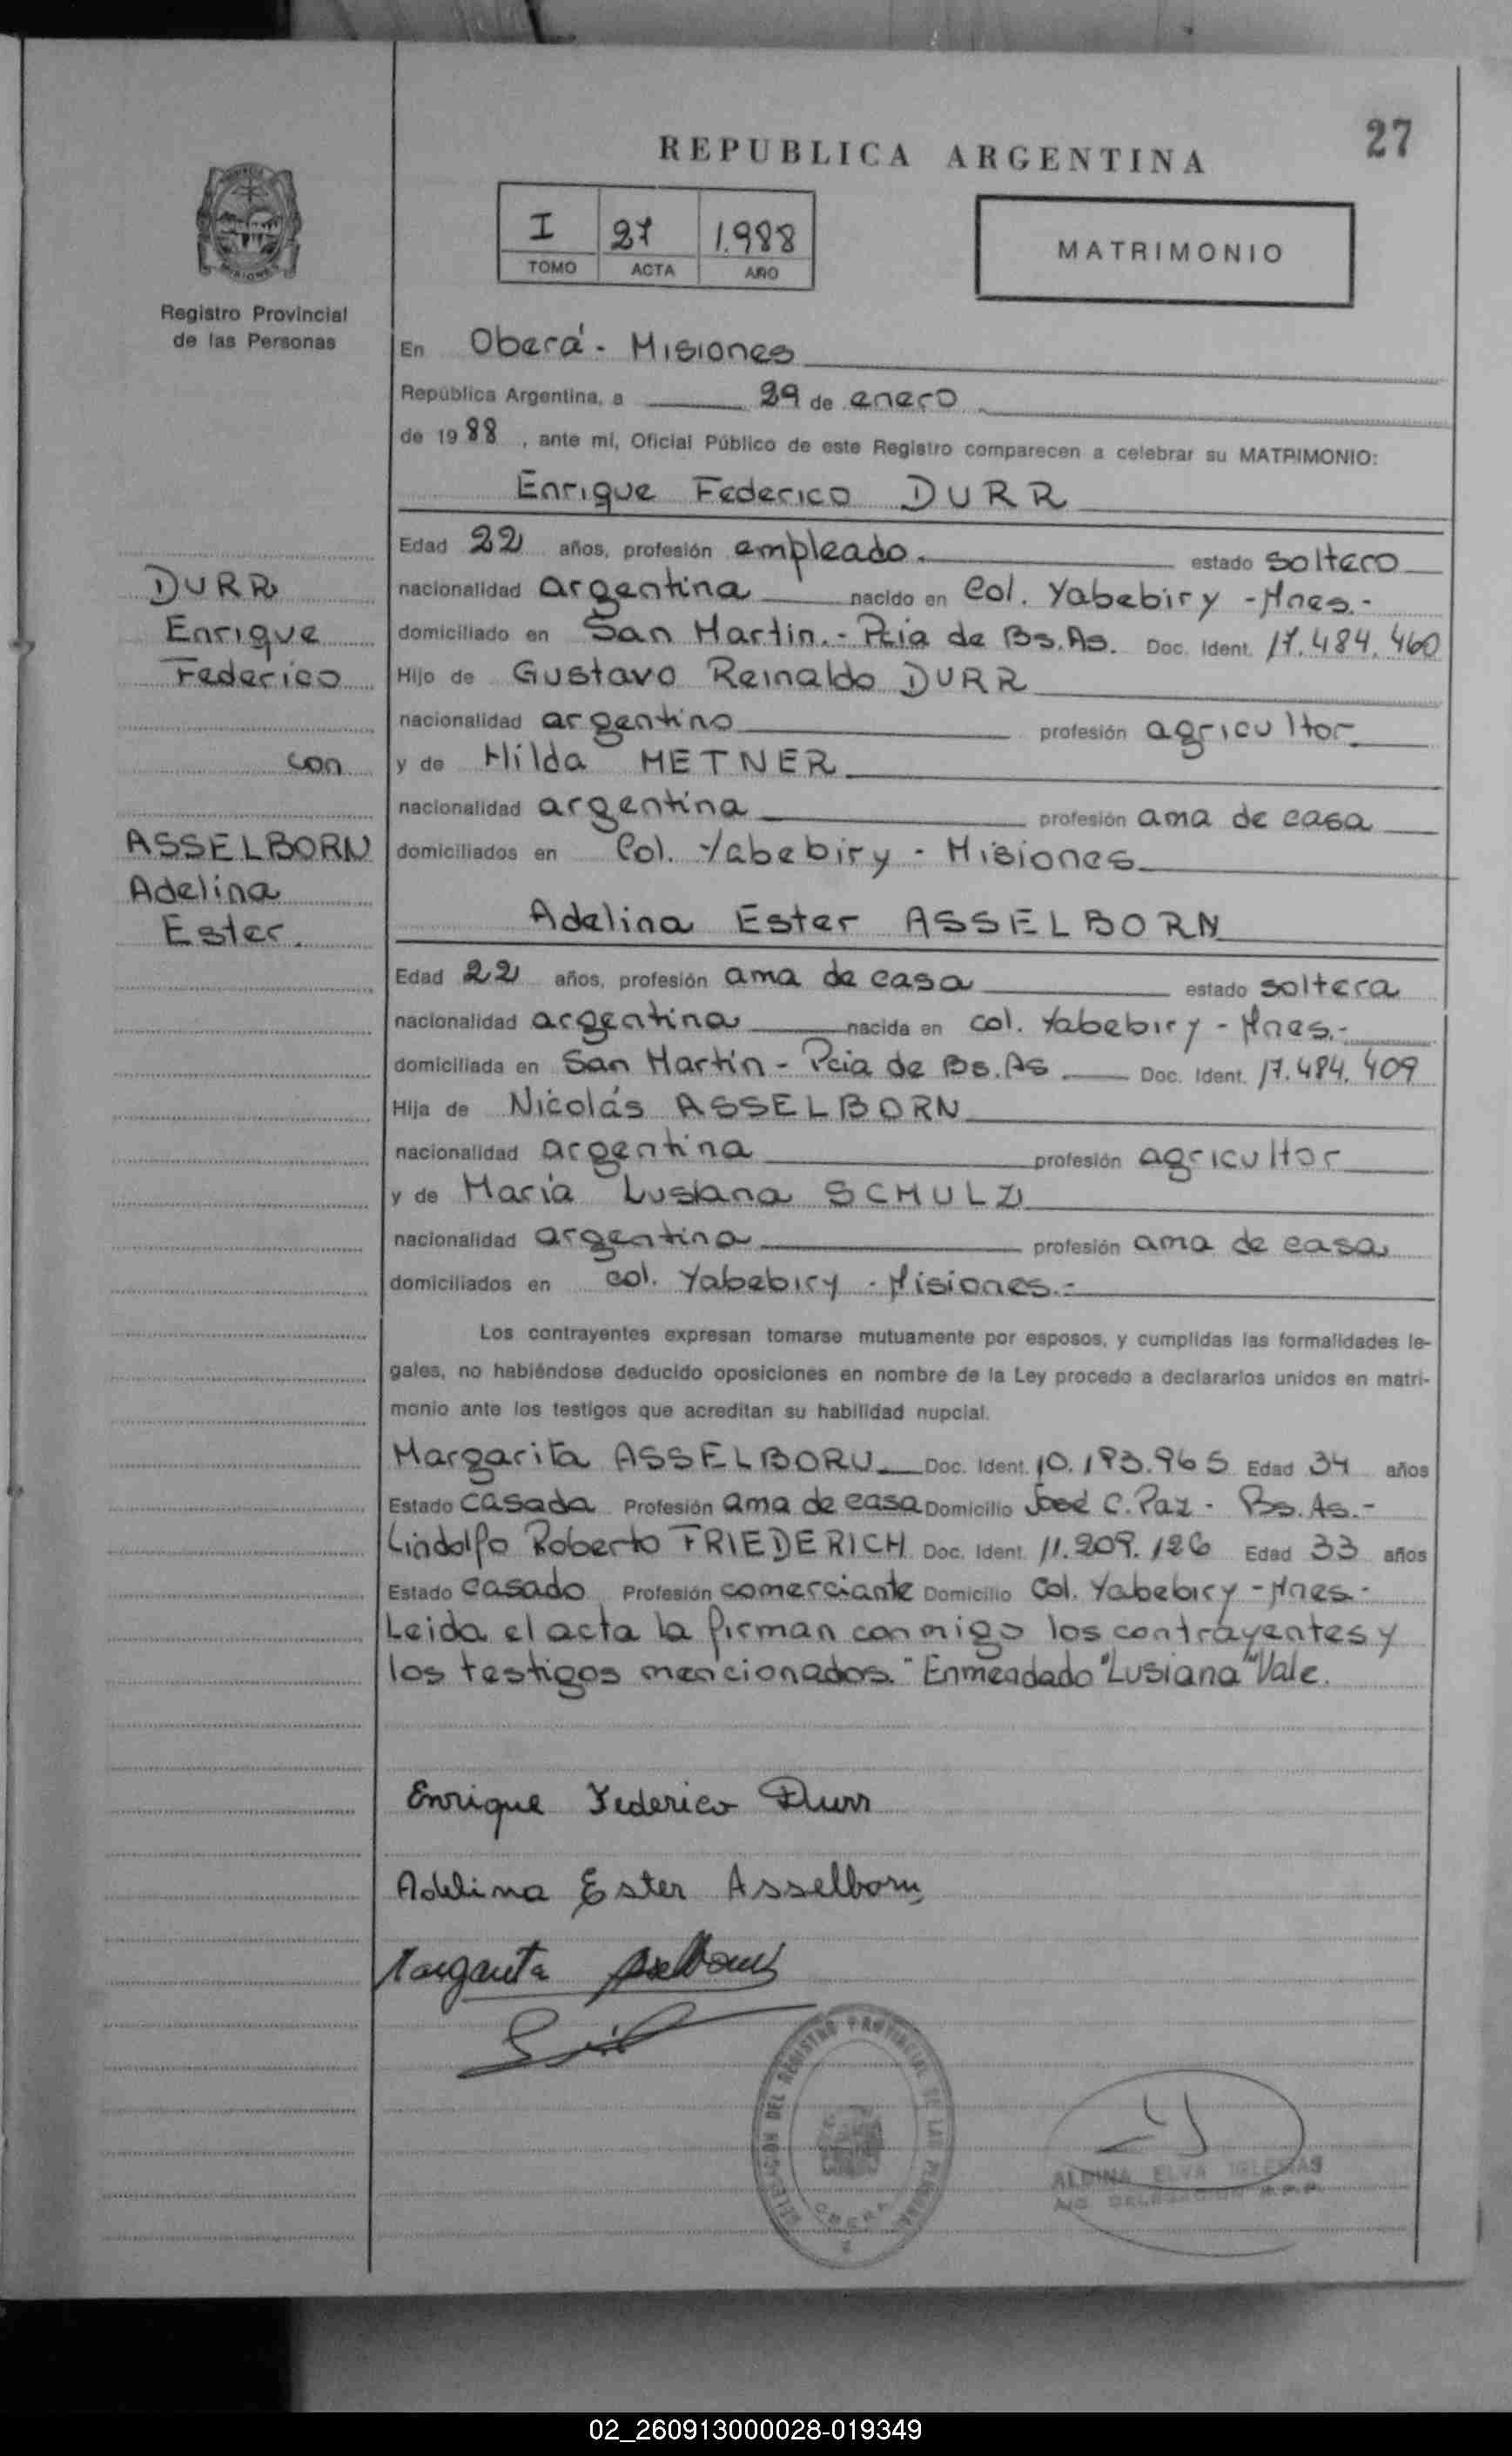 27
REPUBLICA ARGENTINA
I 27 1.988
TOMO ACTA AÑO
MATRIMONIO
MISIONES
Registro Provincial
de las Personas
En Oberá - Misiones
República Argentina, a 29 de enero
de 1988, ante mí, Oficial Público de este Registro comparecen a celebrar su MATRIMONIO:
Enrique Federico DURR
Edad 22 años, profesión empleado. estado soltero
nacionalidad argentina nacido en Col. Yabebiry - Mnes.-
domiciliado en San Martin.- Pcia de Bs.As. Doc. Ident. 17.484.460
Hijo de Gustavo Reinaldo DURR
nacionalidad argentino profesión agricultor
y de Hilda METNER
nacionalidad argentina profesión ama de casa
domiciliados en Col. Yabebiry - Misiones
DURR
Enrique
Federico
con
ASSELBORN
Adelina
Ester.
Adelina Ester ASSELBORN
Edad 22 años, profesión ama de casa estado soltera
nacionalidad argentina nacida en col. Yabebiry - Mnes.-
domiciliada en San Martín - Pcia de Bs.As Doc. Ident. 17.484.409
Hija de Nicolás ASSELBORN
nacionalidad argentina profesión agricultor
y de María Lusiana SCHULZ
nacionalidad argentina profesión ama de casa
domiciliados en col. Yabebiry - Misiones.-
Los contrayentes expresan tomarse mutuamente por esposos, y cumplidas las formalidades le-
gales, no habiéndose deducido oposiciones en nombre de la Ley procedo a declararlos unidos en matri-
monio ante los testigos que acreditan su habilidad nupcial.
Margarita ASSELBORN Doc. Ident. 10.193.965 Edad 34 años
Estado casada Profesión ama de casa Domicilio José C. Paz - Bs. As.-
Lindolfo Roberto FRIEDERICH Doc. Ident. 11.209.126 Edad 33 años
Estado casado Profesión comerciante Domicilio Col. Yabebiry - Mnes-
Leida el acta la firman conmigo los contrayentes y
los testigos mencionados. "Enmendado "Lusiana" Vale.
Enrique Federico Durr
Adelina Ester Asselborn
Margarita Asselborn
DELEGACION DEL REGISTRO PROVINCIAL DE LAS PERSONAS
OBERA
ALBINA ELVA IGLESIAS
A/C. DELEGACION R.P.P.
02_260913000028-019349